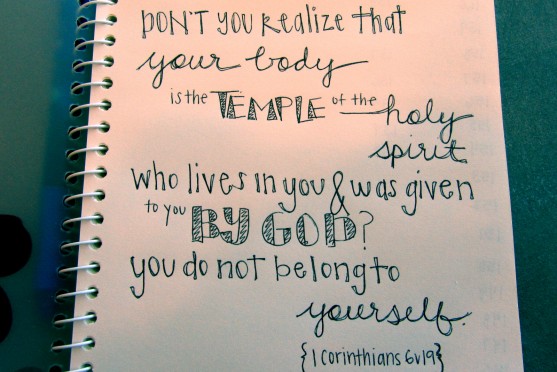 DON'T you Realize that
your body
is the TEMPLE of the holy
spirit
who lives in you & was given
to you BY GOD?
you do not belong to
yourself.
{1 corinthians 6v19}